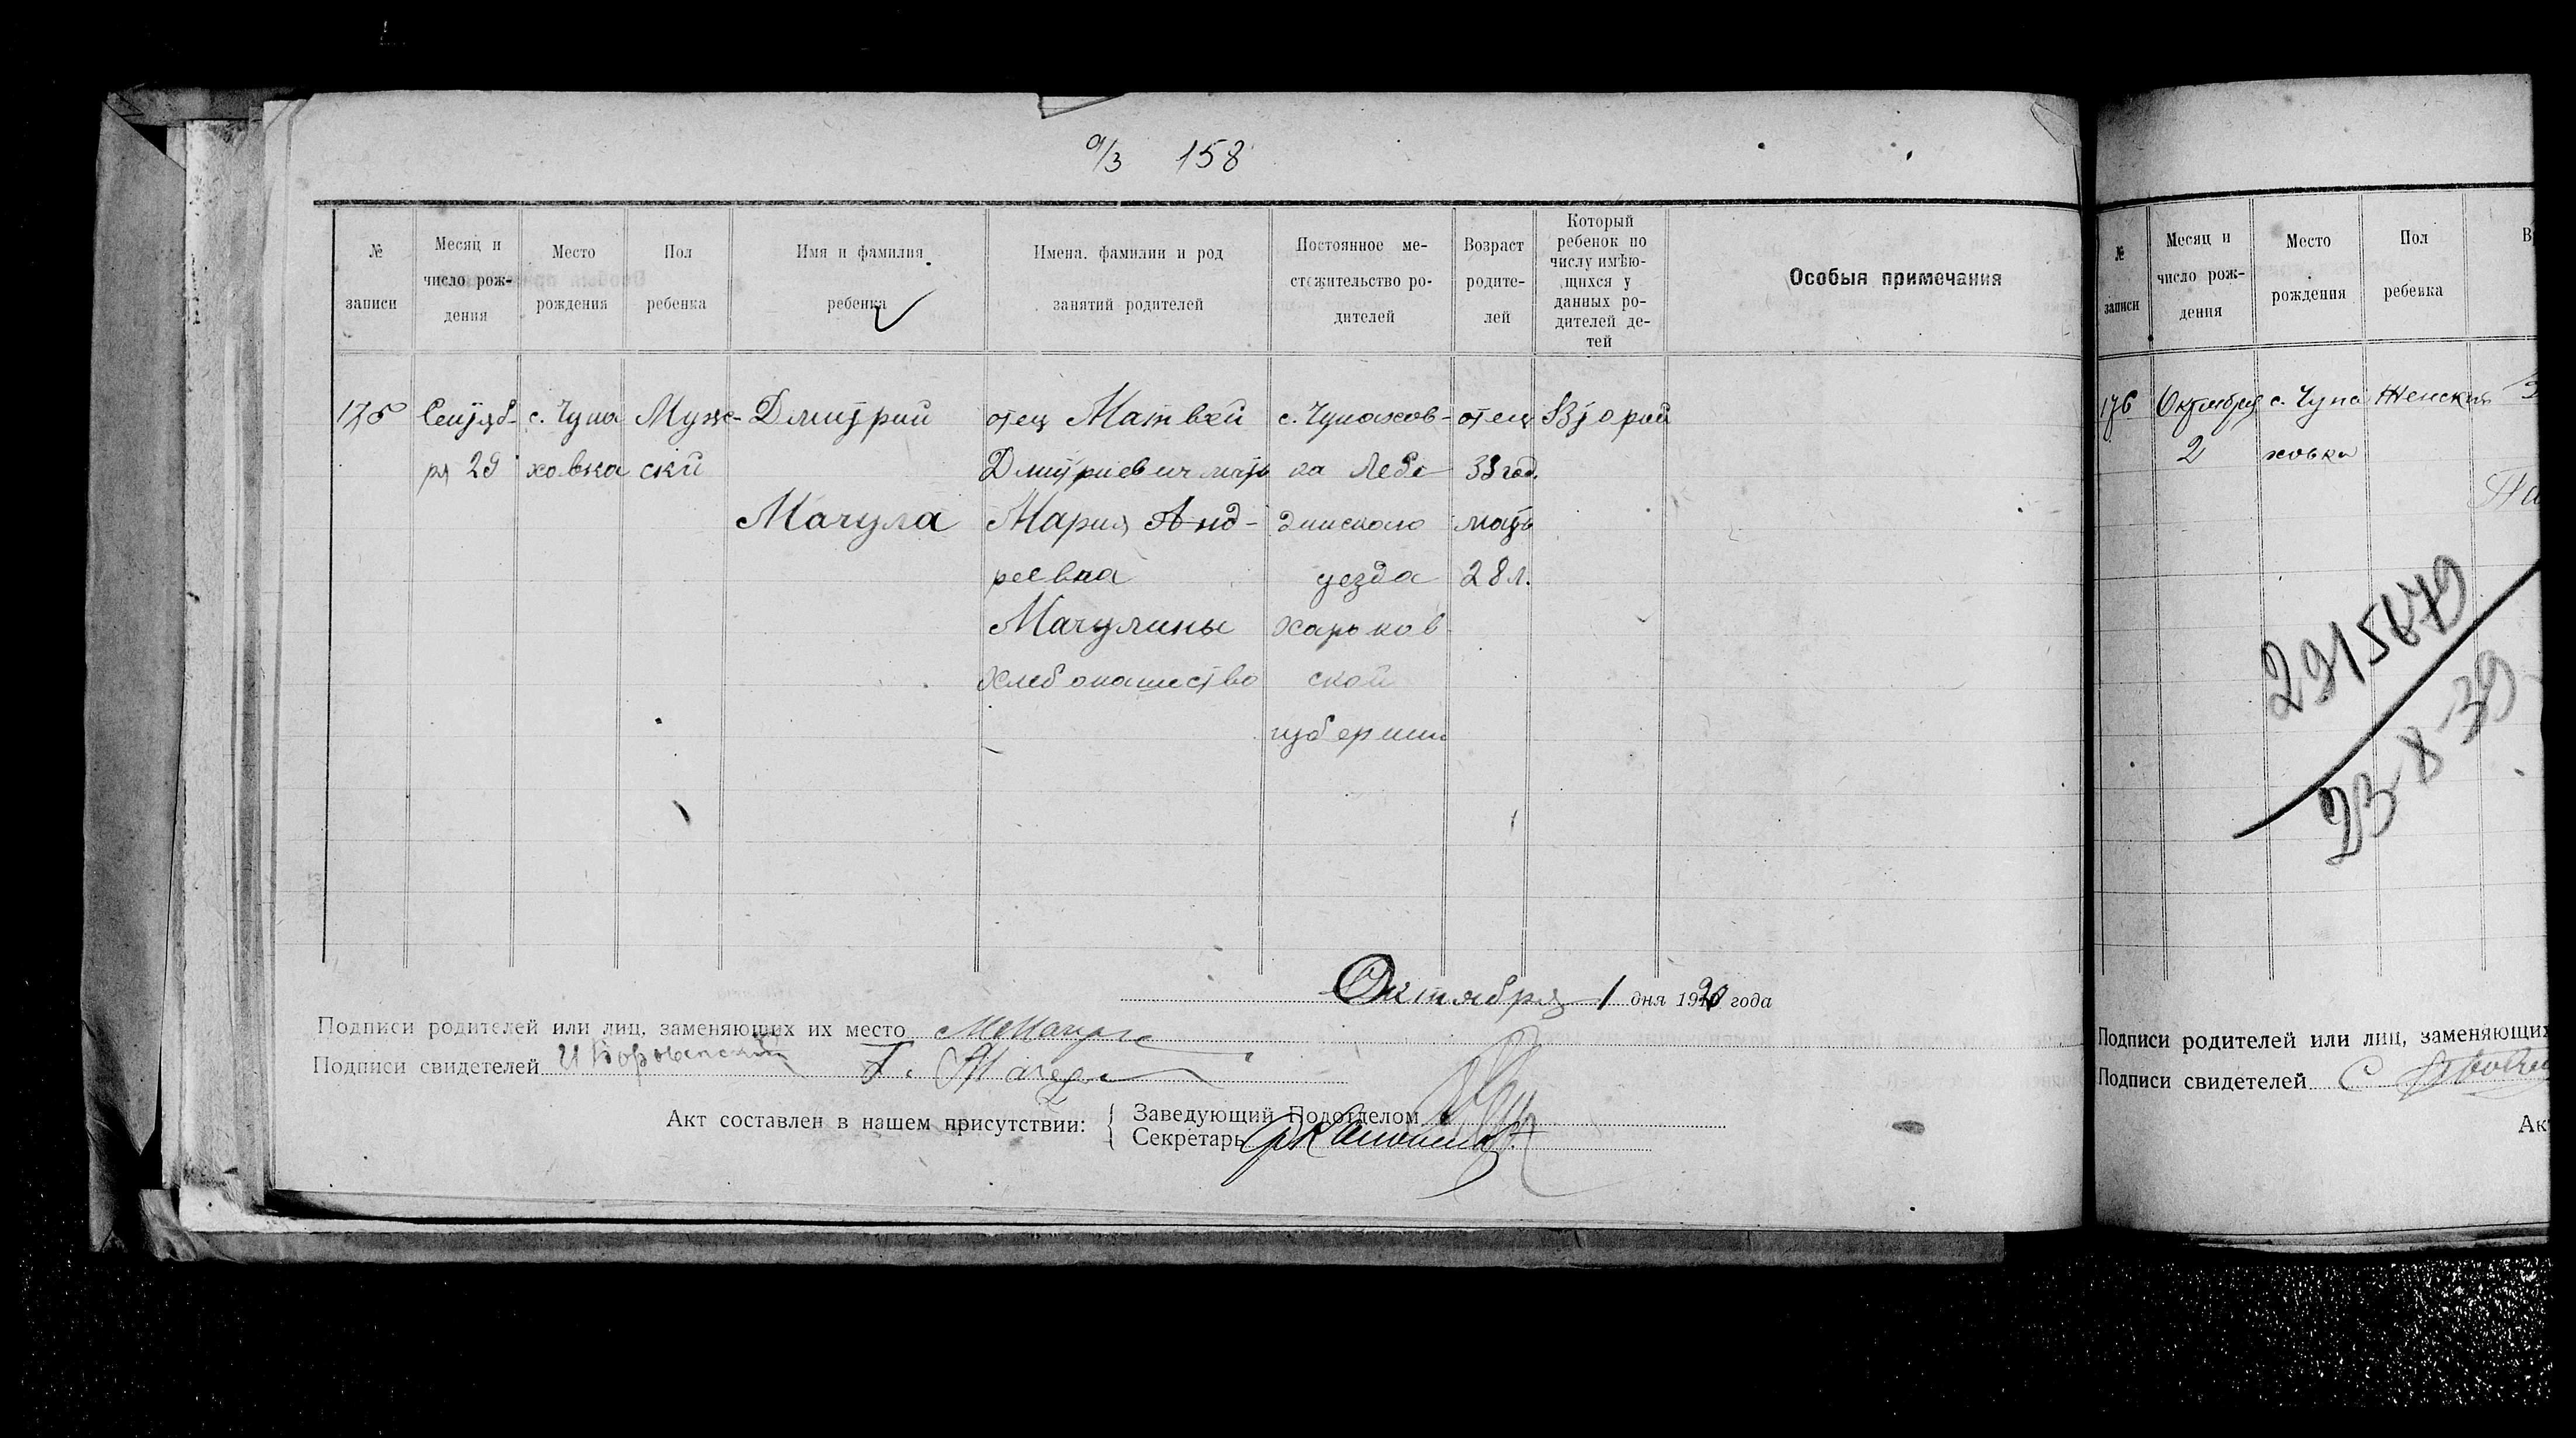 а/з 158
№ записи
Месяц и число рождения
Место рождения
Пол ребенка
Имя и фамилия ребенка
Имена. фамилии и род занятий родителей
Постоянное местожительство родителей
Возраст родителей
Который ребенок по числу имѣющихся у данных родителей детей
Особыя примечания
175 Сентяб- с. Чупа Муж- Дмитрий отец Матвей с. Чупахов- отец Второй
ря 29 ховка ский Дмитриевич мать ка Лебе 33 год.
Мачула Мария Анд- динского мать
реевна уезда 28 л.
Мачулины Харьков-
Хлебопашество ской
губернии
Октября 1 дня 1920 года
Подписи родителей или лиц, заменяющих их место
Подписи свидетелей
Акт составлен в нашем присутствии:
Заведующий Подотделом
Секретарь
№ записи
Месяц и число рождения
Место рождения
Пол ребенка
176 Октября с. Чупа Женский
2 ховка
23-8-39
Подписи родителей или лиц, заменяющих
Подписи свидетелей С
Ак